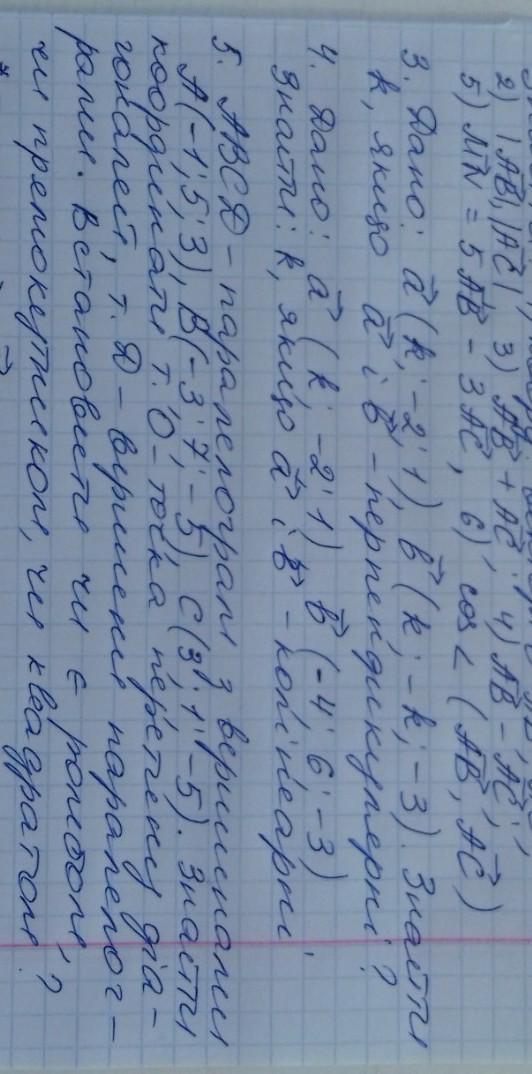 2) |AB|, |AC|, 3) AB + AC; 4) AB - AC;
5) MN = 5AB - 3AC, 6) cos < (AB, AC)
3. Дано: a (k; -2; 1), b (k; -k; -3). Знайти
k, якщо a і b - перпендикулярні?
4. Дано: a (k; -2; 1) b (-4; 6; -3)
Знайти: k, якщо a і b - колінеарні.
5. ABCD - паралелограм з вершинами
A(-1; 5; 3), B(-3; 7; -5) C(3; 1; -5). Знайти
координати т. O - точка перетену діа-
гоналей, т. D - вершени паралелог-
рама. Встановыте чи є ромбом,
чи прямокутником, чи квадратом?